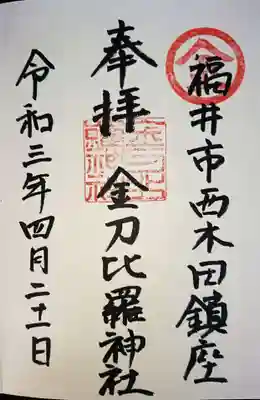 福井市西木田鎮座
奉拝 金刀比羅神社
令和三年四月二十一日